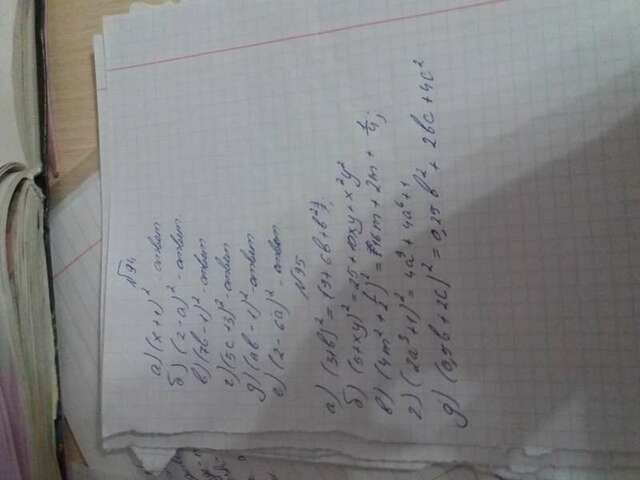 №94
а) (x+1)² - ответ
б) (2-a)² - ответ
в) (7b-1)² - ответ
г) (5c+3)² - ответ
д) (ab-1)² - ответ
е) (2-6a)² - ответ
№95
а) (3+b)² = 9+6b+b²
б) (5+xy)² = 25+10xy+x²y²
в) (4m²+1/2)² = 16m+2m+1/4;
г) (2a³+1)² = 4a⁹+4a⁶+1
д) (0,5b+2c)² = 0,25b²+2bc+4c²